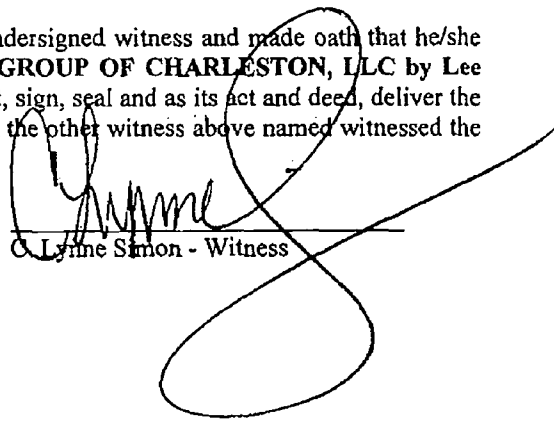 ndersigned witness and made oath that he/she
GROUP OF CHARLESTON, LLC by Lee
, sign, seal and as its act and deed, deliver the
the other witness above named witnessed the
C Lynne S
C. Lynne Simon - Witness